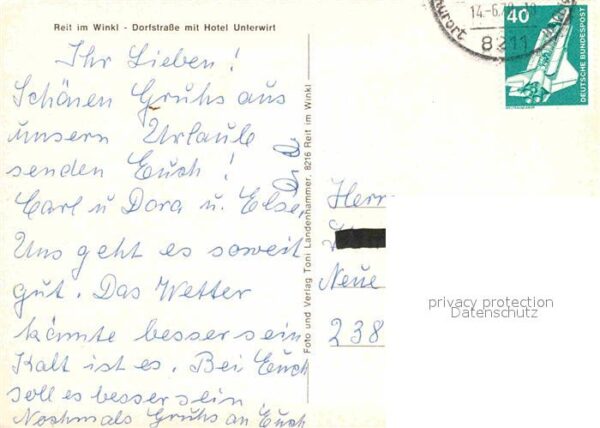 Reit im Winkl - Dorfstraße mit Hotel Unterwirt
Ihr Lieben!
Schönen Gruhs aus
unsern Urlaub
senden Euch!
Carl u Dora u. Else,
Uns geht es soweit
gut. Das Wetter
könnte besser sein
Kalt ist es. Bei Euch
soll es besser sein.
Nochmals Gruhs an Euch
Foto und Verlag Toni Landenhammer, 8216 Reit im Winkl
14.-6.79.-10
8211
urort
40
DEUTSCHE BUNDESPOST
Herr
Neue
238
privacy protection
Datenschutz